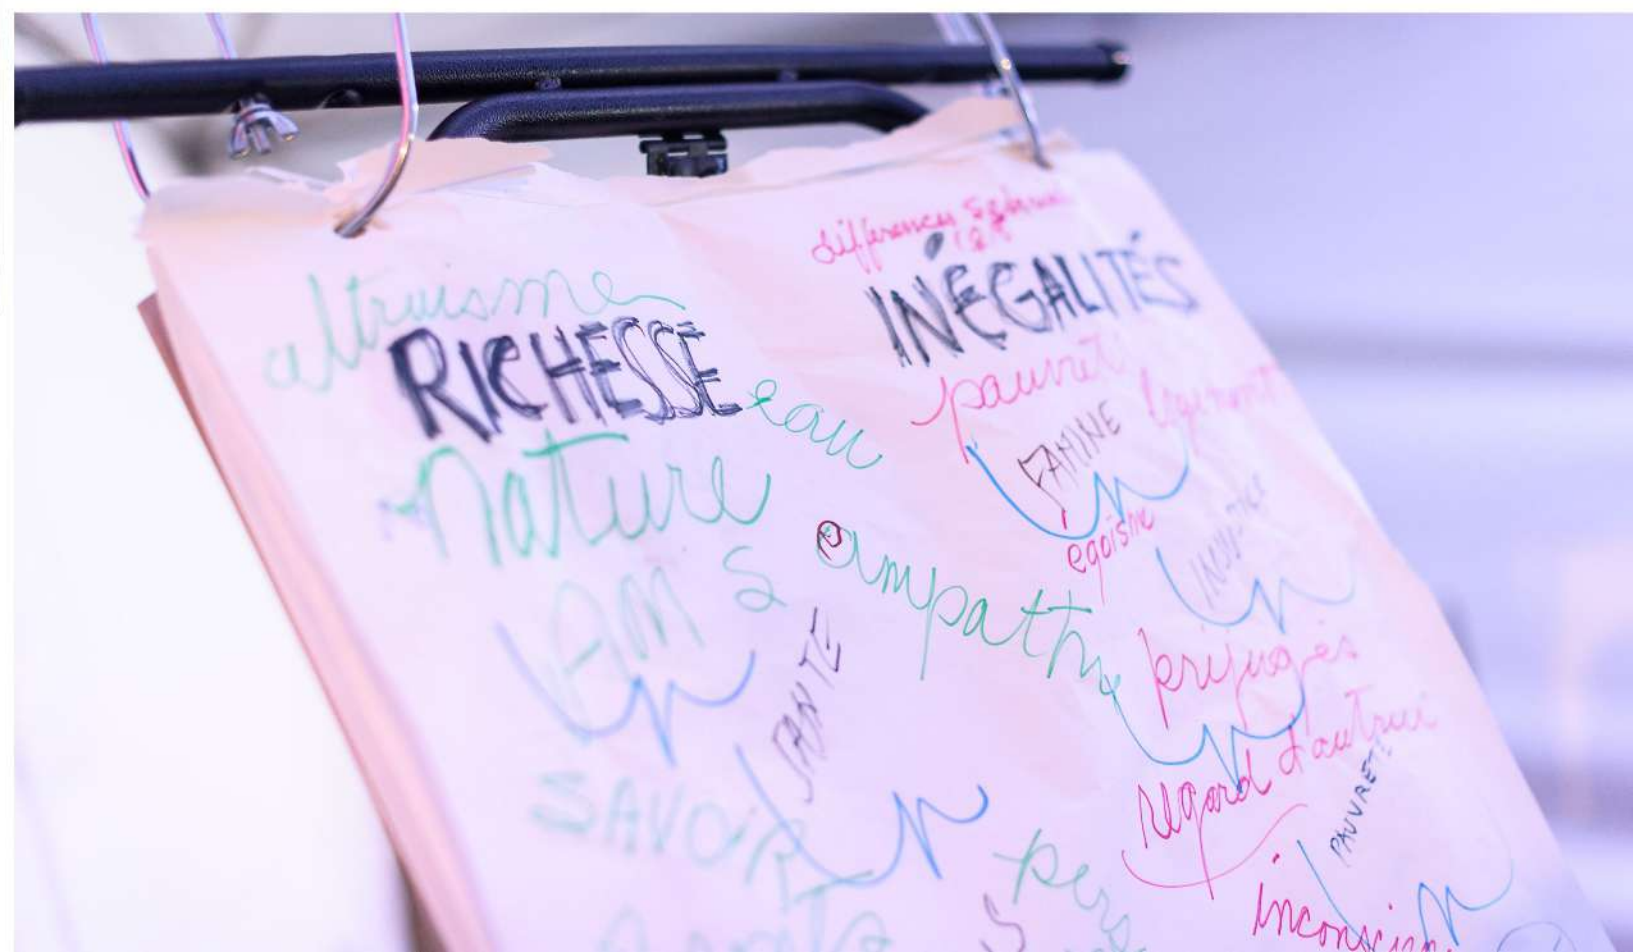 altruisme
RICHESSE
eau
nature
AMS
empathie
SANTÉ
SAVOIR
pers
différences
INÉGALITÉS
pauvreté
logement
FAMINE
égoïsme
INJUSTICE
préjugés
regard d'autrui
PAUVRETÉ